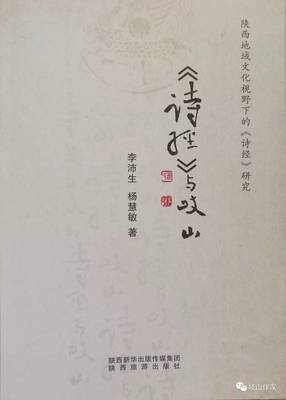 陕西地域文化视野下的《诗经》研究
《诗经》与岐山
李沛生 杨慧敏 著
陕西新华出版传媒集团
陕西旅游出版社
岐山作家